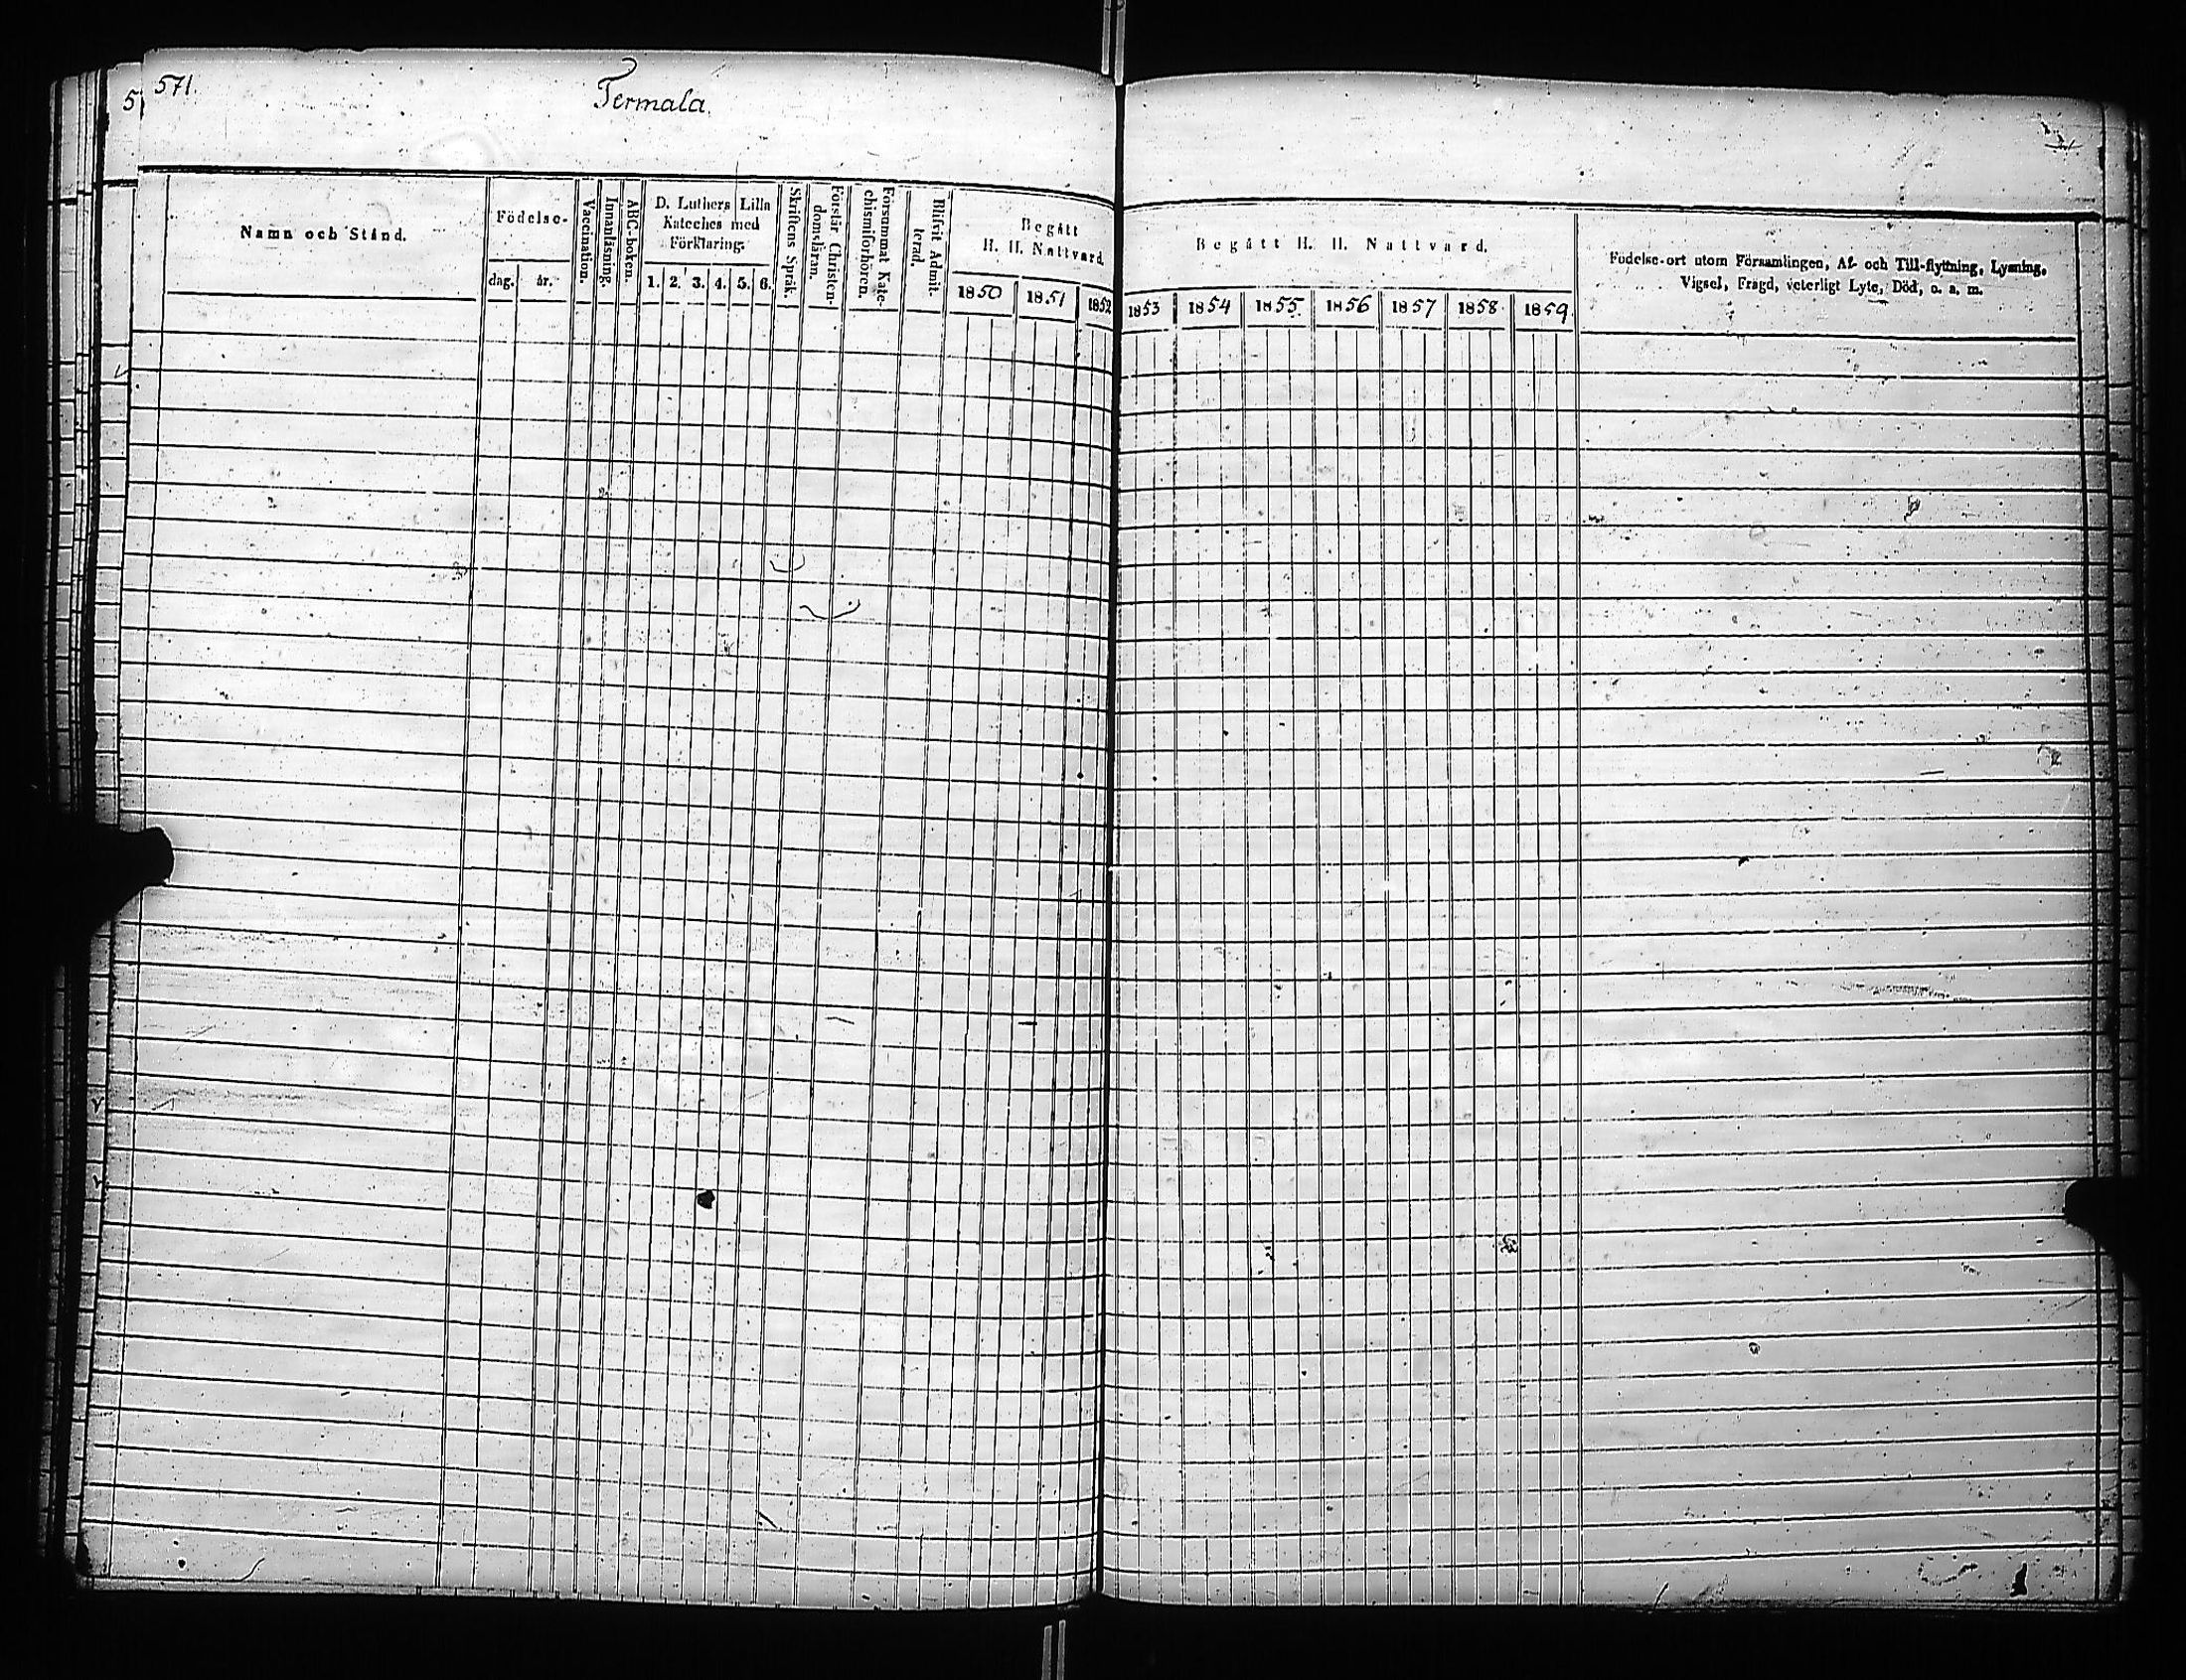 571.
5
Termala.
Namn och Stånd.
Födelse-
dag.
år.
Vaccination.
Innanläsning.
ABC-boken.
D. Luthers Lilla
Kateches med
Förklaring.
1. 2. 3. 4. 5. 6.
Skriftens Språk.
Förstår Christen-
domsläran.
Försummat Kate-
chismiförhören.
Blifvit Admit-
terad.
Begått
H. H. Nattvard.
1850 1851 1852
Begått H. H. Nattvard.
1853 1854 1855. 1856 1857 1858. 1859.
Födelse-ort utom Församlingen, Af- och Till-flyttning, Lysning,
Vigsel, Frägd, veterligt Lyte, Död, o. s. m.